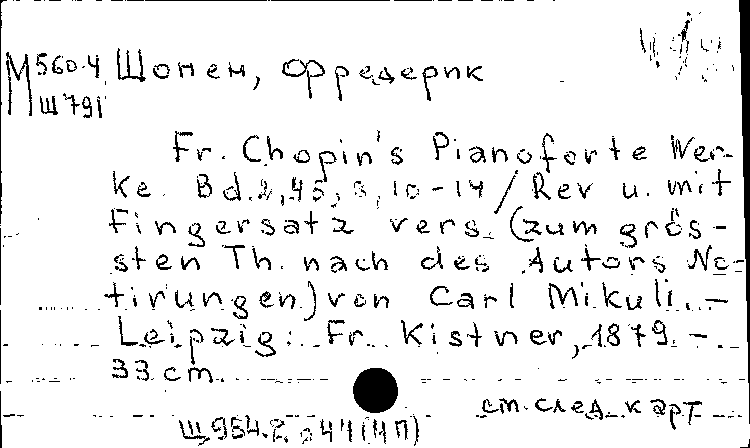 М560.4 Шопен, Фредерик
Ш791
Fr. Chopin's Pianoforte Wer-
ke. Bd. 2, 45, 8, 10-14 / Rev u. mit
Fingersatz vers. (zum grös-
sten Th. nach des Autors No-
tirungen) von Carl Mikuli. -
Leipzig: Fr. Kistner, 1879. -
33 cm
см. след. карт